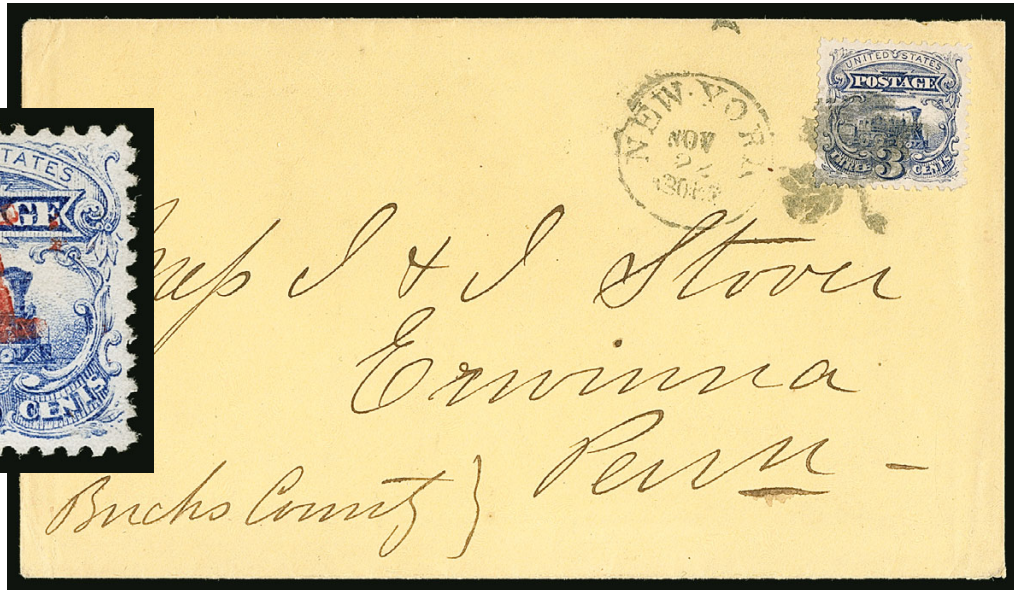 UNITED STATES
POSTAGE
THREE 3 CENTS
NEW-YORK
NOV
22
STATES
GE
CENTS
J & J Stover
Erwinna
Penn -
Bucks County }